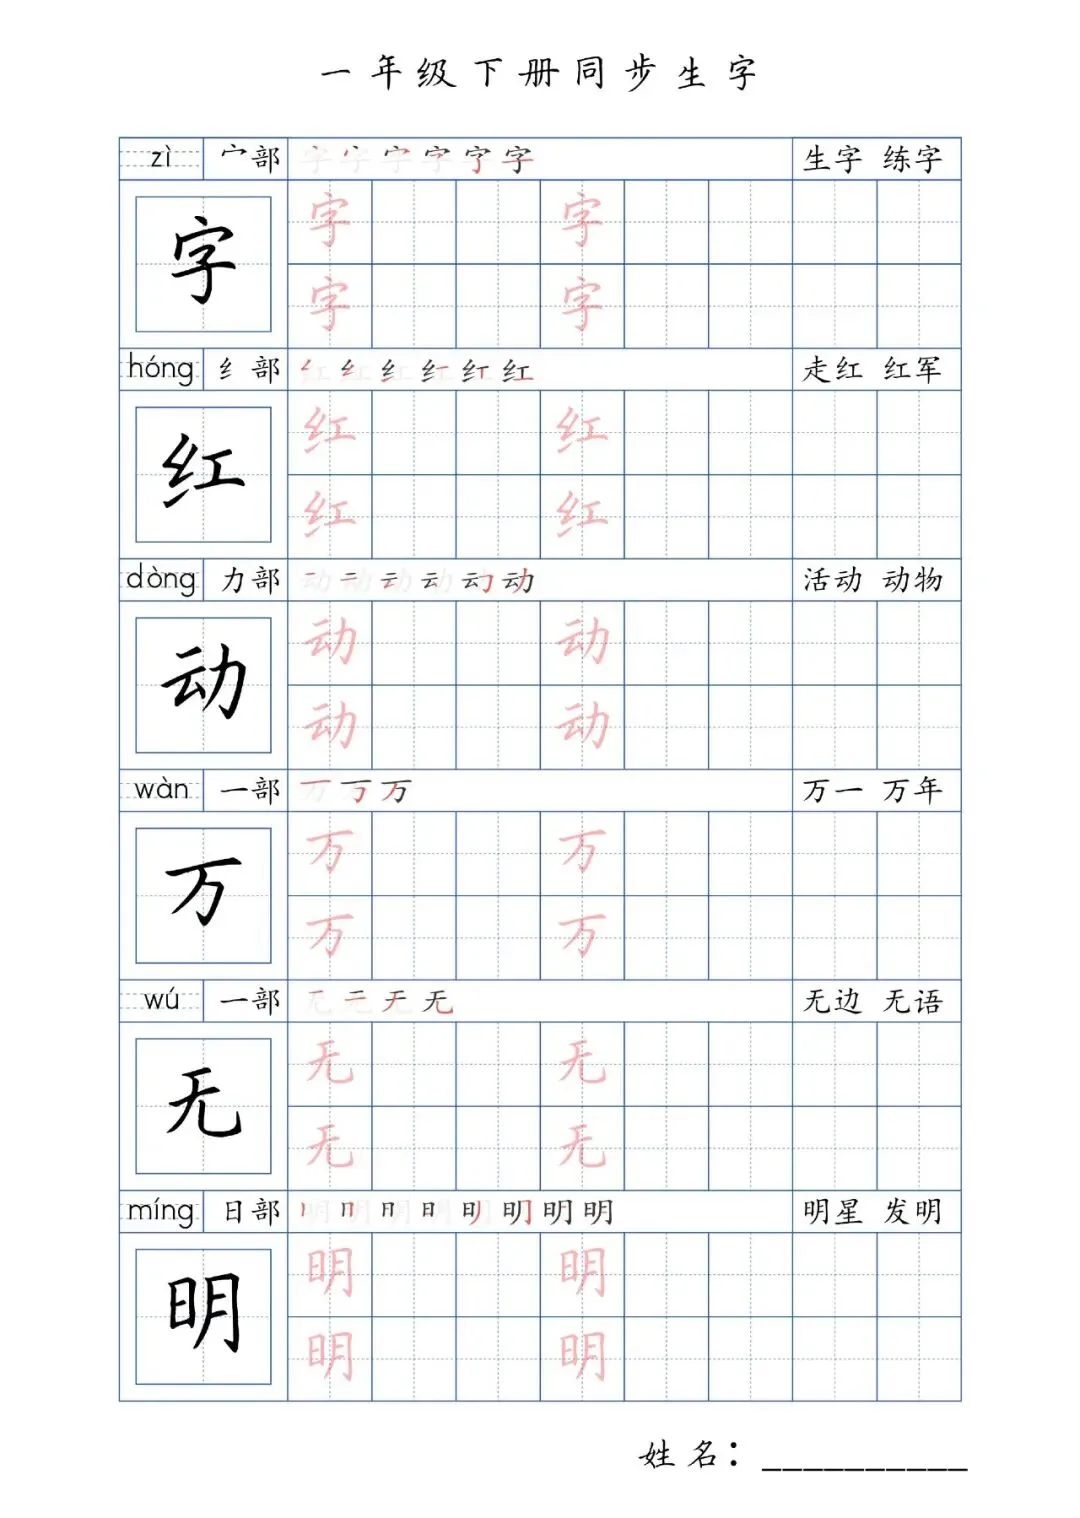 一年级下册同步生字
zì 宀部 字字字字字字 生字 练字
字 字 字
字 字
hóng 纟部 红红红红红红 走红 红军
红 红 红
红 红
dòng 力部 动动动动动动 活动 动物
动 动 动
动 动
wàn 一部 万万万 万一 万年
万 万 万
万 万
wú 一部 无无无无 无边 无语
无 无 无
无 无
míng 日部 明明明明明明明明 明星 发明
明 明 明
明 明
姓名：__________